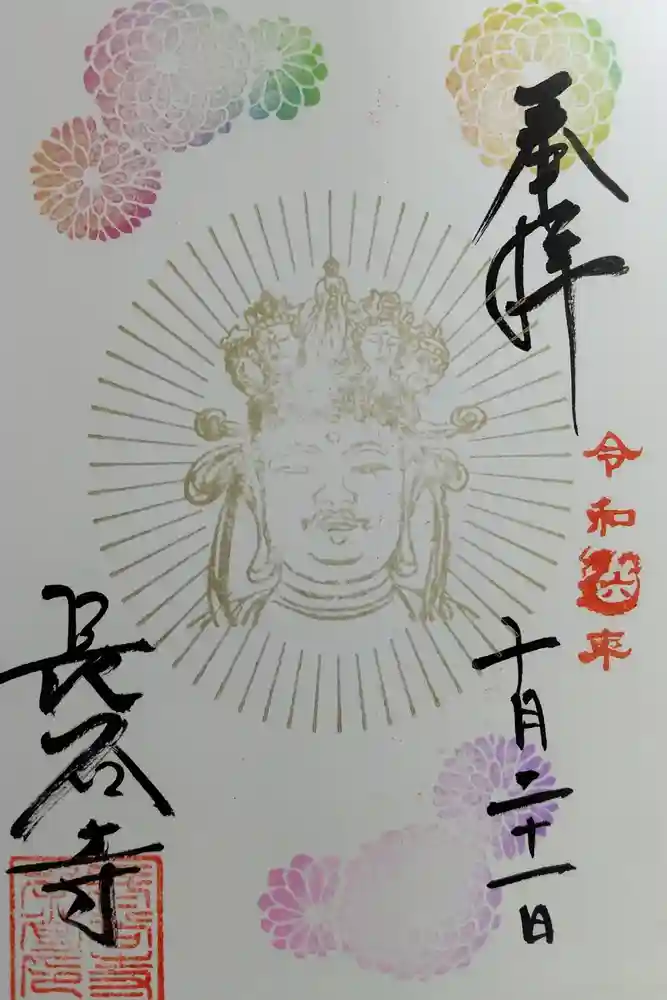 奉拝
令和六年
十月二十一日
長谷寺